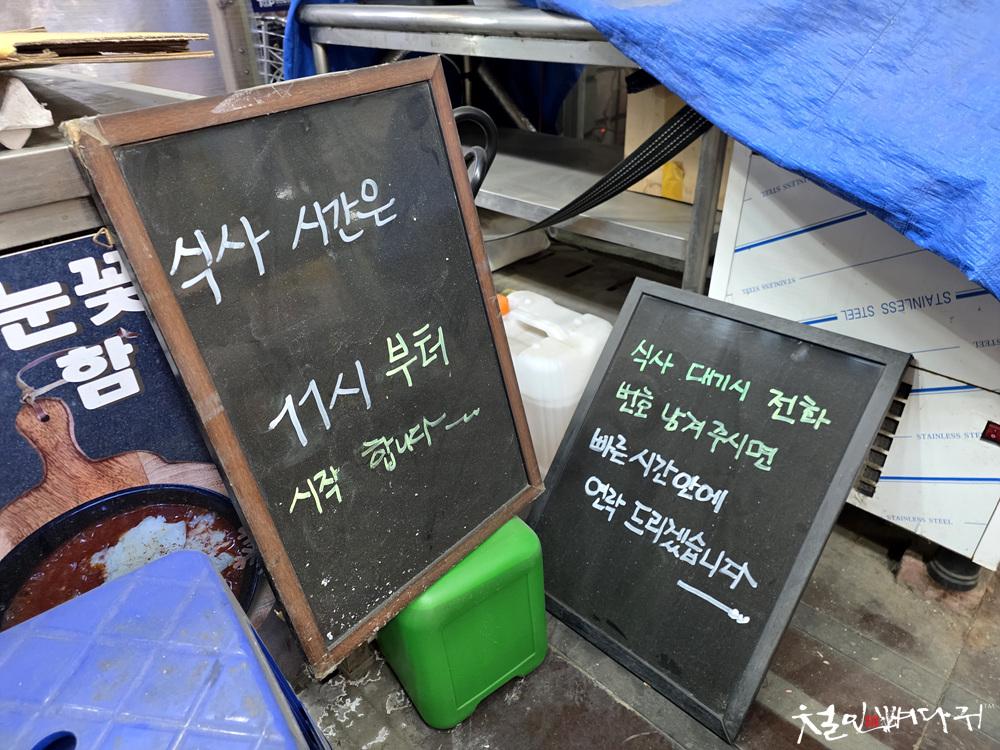 식사 시간은
11시 부터
시작 합니다~
식사 대기시 전화
번호 남겨 주시면
빠른 시간안에
연락 드리겠습니다
눈꽃
함
STAINLESS STEEL
STAINLESS STEEL
STAINLESS STEEL
STAINLESS STEEL
STAINLESS STEEL